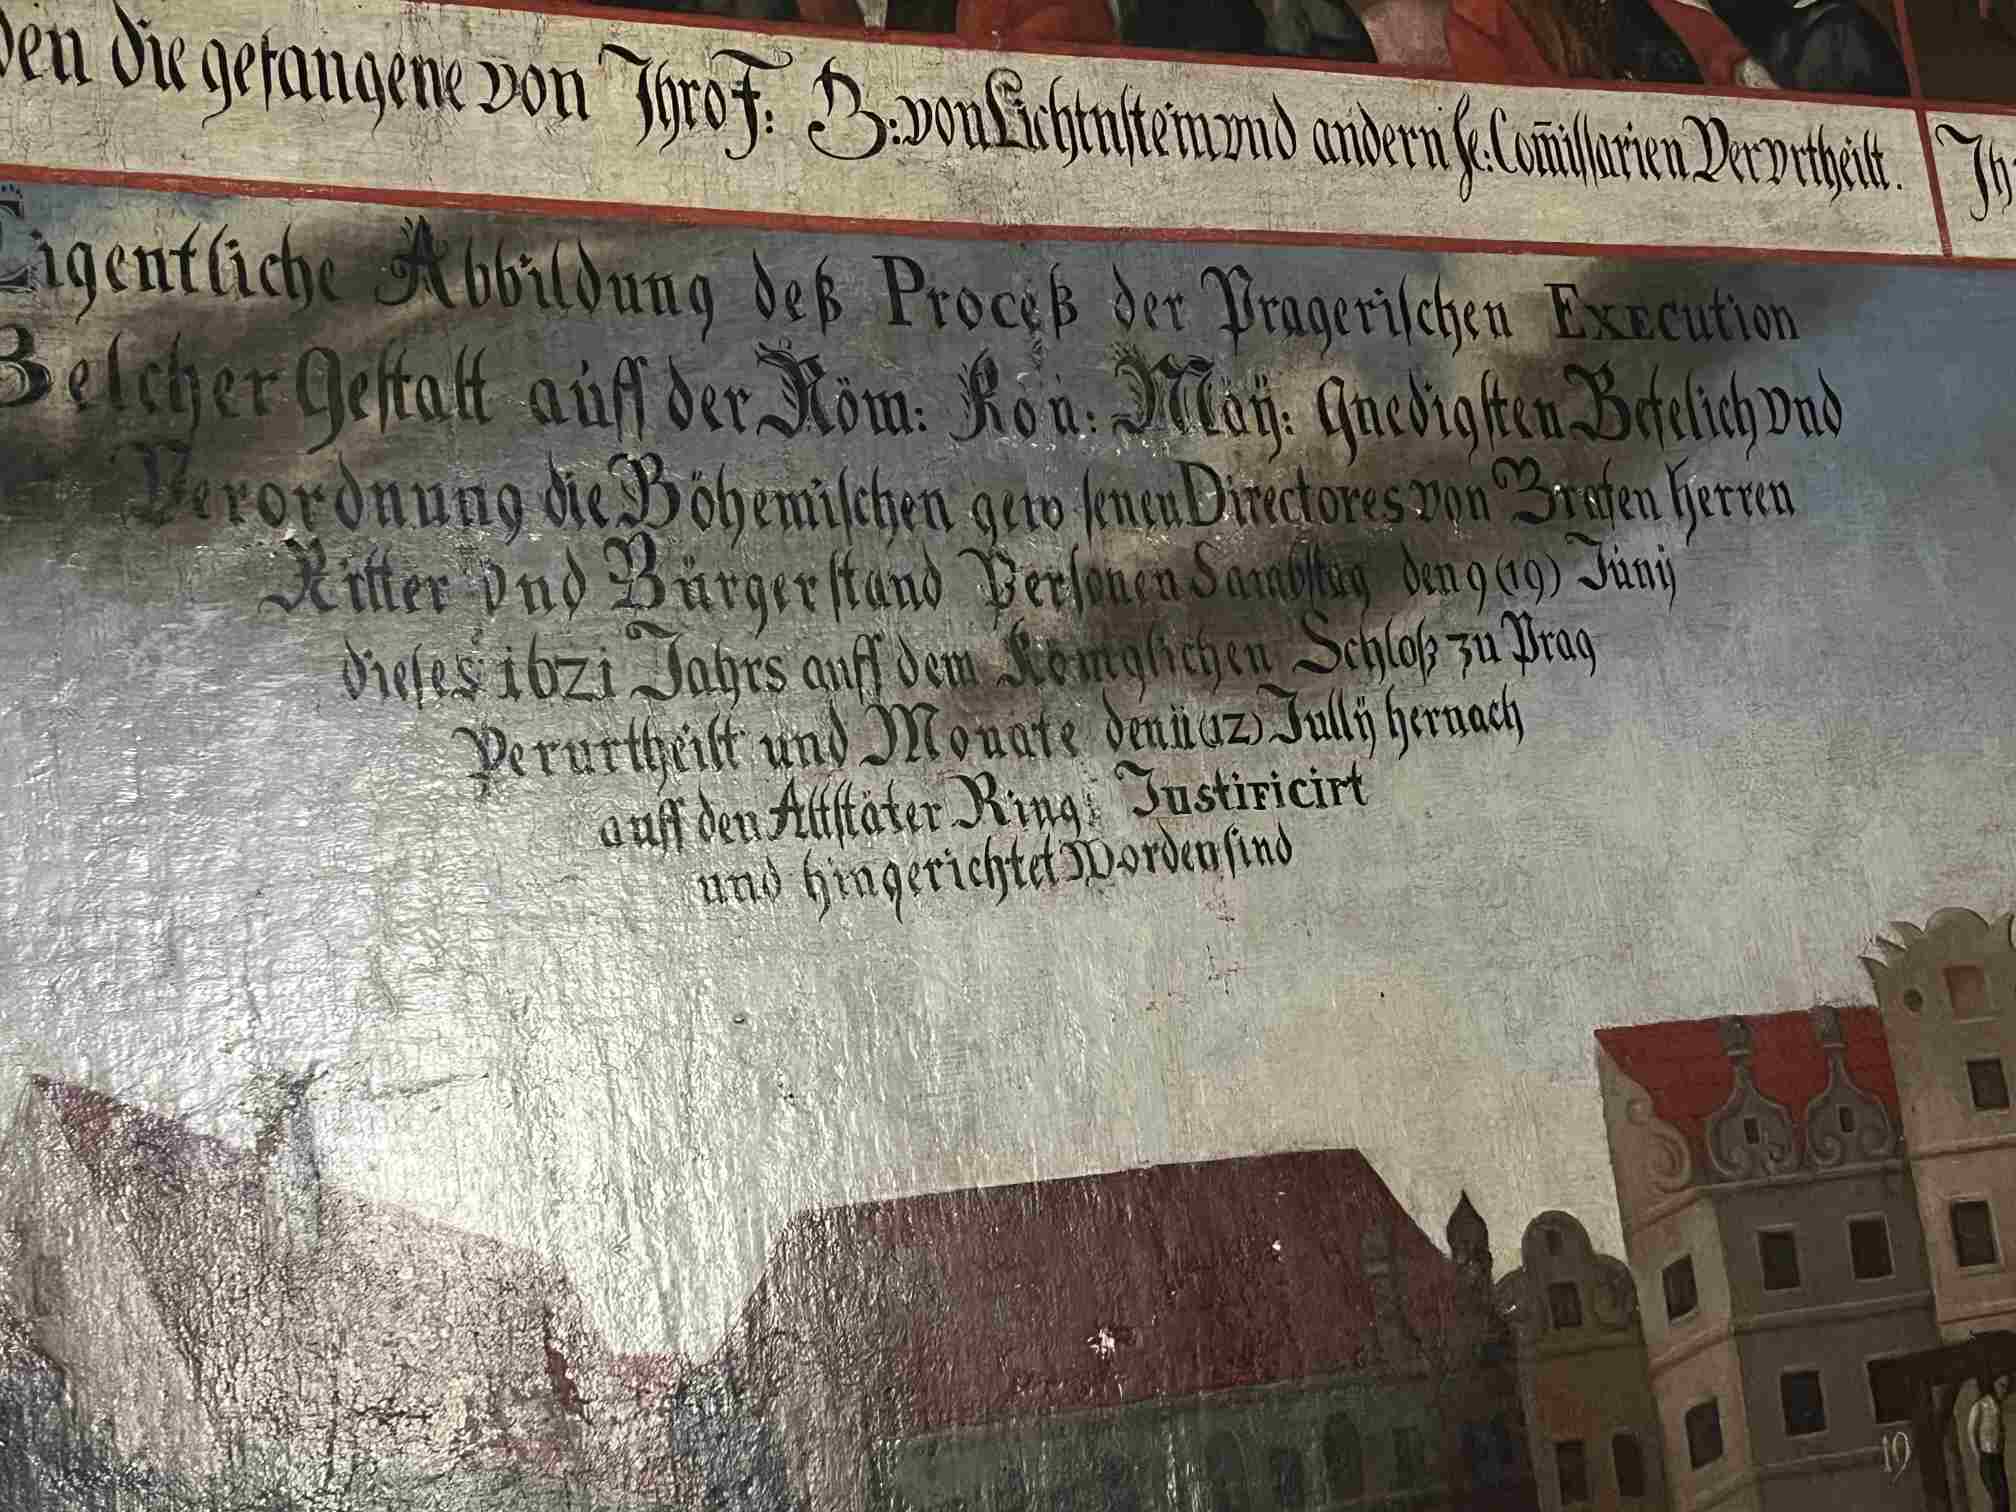 den die gefangene von Ihro F: G: von Lichtnstein vnd andern Se: Com̃issarien Vervrtheilt.
Eigentliche Abbildung deß Proceß der Pragerischen Execution
Belcher Gestalt auff der Röm: Kön: Maÿ: gnedigsten Befelich vnd
Verordnung die Böhemischen gewesenen Directores von Grafen herren
Ritter vnd Bürgerstand Personen Sambstag den 9 (19) Junÿ
dieses 1621 Jahrs auff dem Königlichen Schloß zu Prag
Verurtheilt und Monate den 11 (12) Jullÿ hernach
auff den Altstäter Ring Justificirt
und hingerichtet Worden sind
19